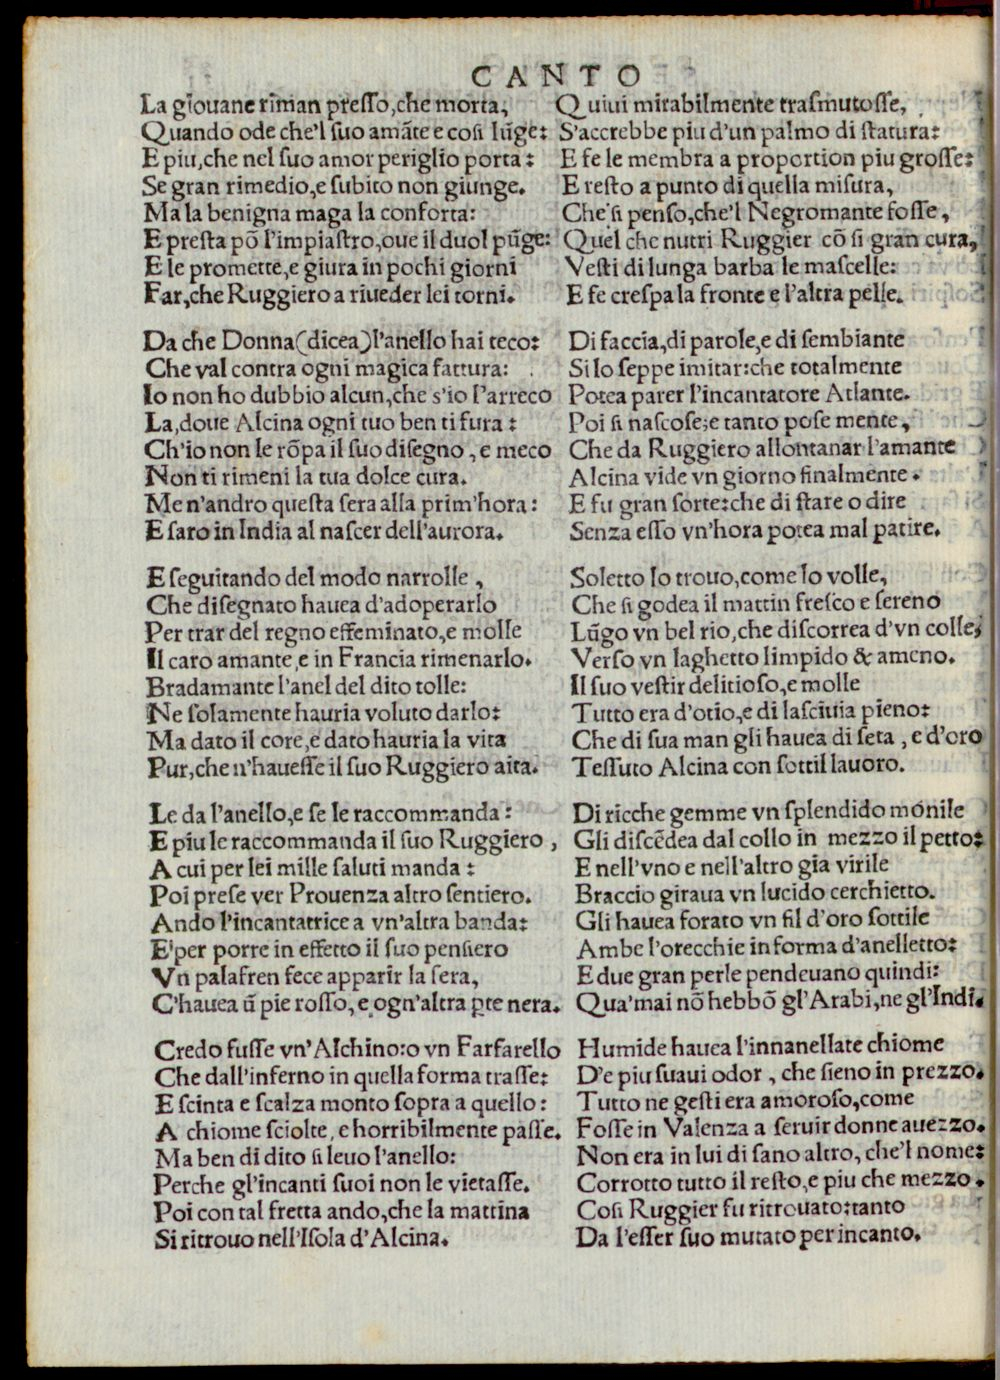 CANTO
La giouane riman presso, che morta,
Quando ode che'l suo amãte e cosi lũge:
E piu, che nel suo amor periglio porta:
Se gran rimedio, e subito non giunge.
Ma la benigna maga la conforta:
E presta põ l'impiastro, oue il duol pũge:
E le promette, e giura in pochi giorni
Far, che Ruggiero a riueder lei torni.
Da che Donna (dicea) l'anello hai teco:
Che val contra ogni magica fattura:
Io non ho dubbio alcun, che s'io l'arreco
La, doue Alcina ogni tuo ben ti fura:
Ch'io non le rõpa il suo disegno, e meco
Non ti rimeni la tua dolce cura.
Me n'andro questa sera alla prim'hora:
E saro in India al nascer dell'aurora.
E seguitando del modo narrolle,
Che disegnato hauea d'adoperarlo
Per trar del regno effeminato, e molle
Il caro amante, e in Francia rimenarlo.
Bradamante l'anel del dito tolle:
Ne solamente hauria voluto darlo:
Ma dato il core, e dato hauria la vita
Pur, che n'hauesse il suo Ruggiero aita.
Le da l'anello, e se le raccommanda:
E piu le raccommanda il suo Ruggiero,
A cui per lei mille saluti manda:
Poi prese ver Prouenza altro sentiero.
Ando l'incantatrice a vn'altra banda:
E per porre in effetto il suo pensiero
Vn palafren fece apparir la sera,
C'hauea ũ pie rosso, e ogn'altra ꝑte nera.
Credo fusse vn'Alchino: o vn Farfarello
Che dall'inferno in quella forma trasse:
E scinta e scalza monto sopra a quello:
A chiome sciolte, e horribilmente passe.
Ma ben di dito si leuo l'anello:
Perche gl'incanti suoi non le vietasse.
Poi con tal fretta ando, che la mattina
Si ritrouo nell'Isola d'Alcina.
Quiui mirabilmente trasmutosse,
S'accrebbe piu d'un palmo di statura:
E fe le membra a proportion piu grosse:
E resto a punto di quella misura,
Che si penso, che'l Negromante fosse,
Quel che nutri Ruggier cõ si gran cura,
Vesti di lunga barba le mascelle:
E fe crespa la fronte e l'altra pelle.
Di faccia, di parole, e di sembiante
Si lo seppe imitar: che totalmente
Potea parer l'incantatore Atlante.
Poi si nascose; e tanto pose mente,
Che da Ruggiero allontanar l'amante
Alcina vide vn giorno finalmente.
E fu gran sorte: che di stare o dire
Senza esso vn'hora potea mal patire.
Soletto lo trouo, come lo volle,
Che si godea il mattin fresco e sereno
Lũgo vn bel rio, che discorrea d'vn colle,
Verso vn laghetto limpido & ameno.
Il suo vestir delitioso, e molle
Tutto era d'otio, e di lasciuia pieno:
Che di sua man gli hauea di seta, e d'oro
Tessuto Alcina con sottil lauoro.
Di ricche gemme vn splendido monile
Gli discẽdea dal collo in mezzo il petto:
E nell'vno e nell'altro gia virile
Braccio giraua vn lucido cerchietto.
Gli hauea forato vn fil d'oro sottile
Ambe l'orecchie in forma d'anelletto:
E due gran perle pendeuano quindi:
Qua' mai nõ hebbõ gl'Arabi, ne gl'Indi.
Humide hauea l'innanellate chiome
De piu suaui odor, che sieno in prezzo.
Tutto ne gesti era amoroso, come
Fosse in Valenza a seruir donne auezzo.
Non era in lui di sano altro, che'l nome:
Corrotto tutto il resto, e piu che mezzo.
Cosi Ruggier fu ritrouato: tanto
Da l'esser suo mutato per incanto.